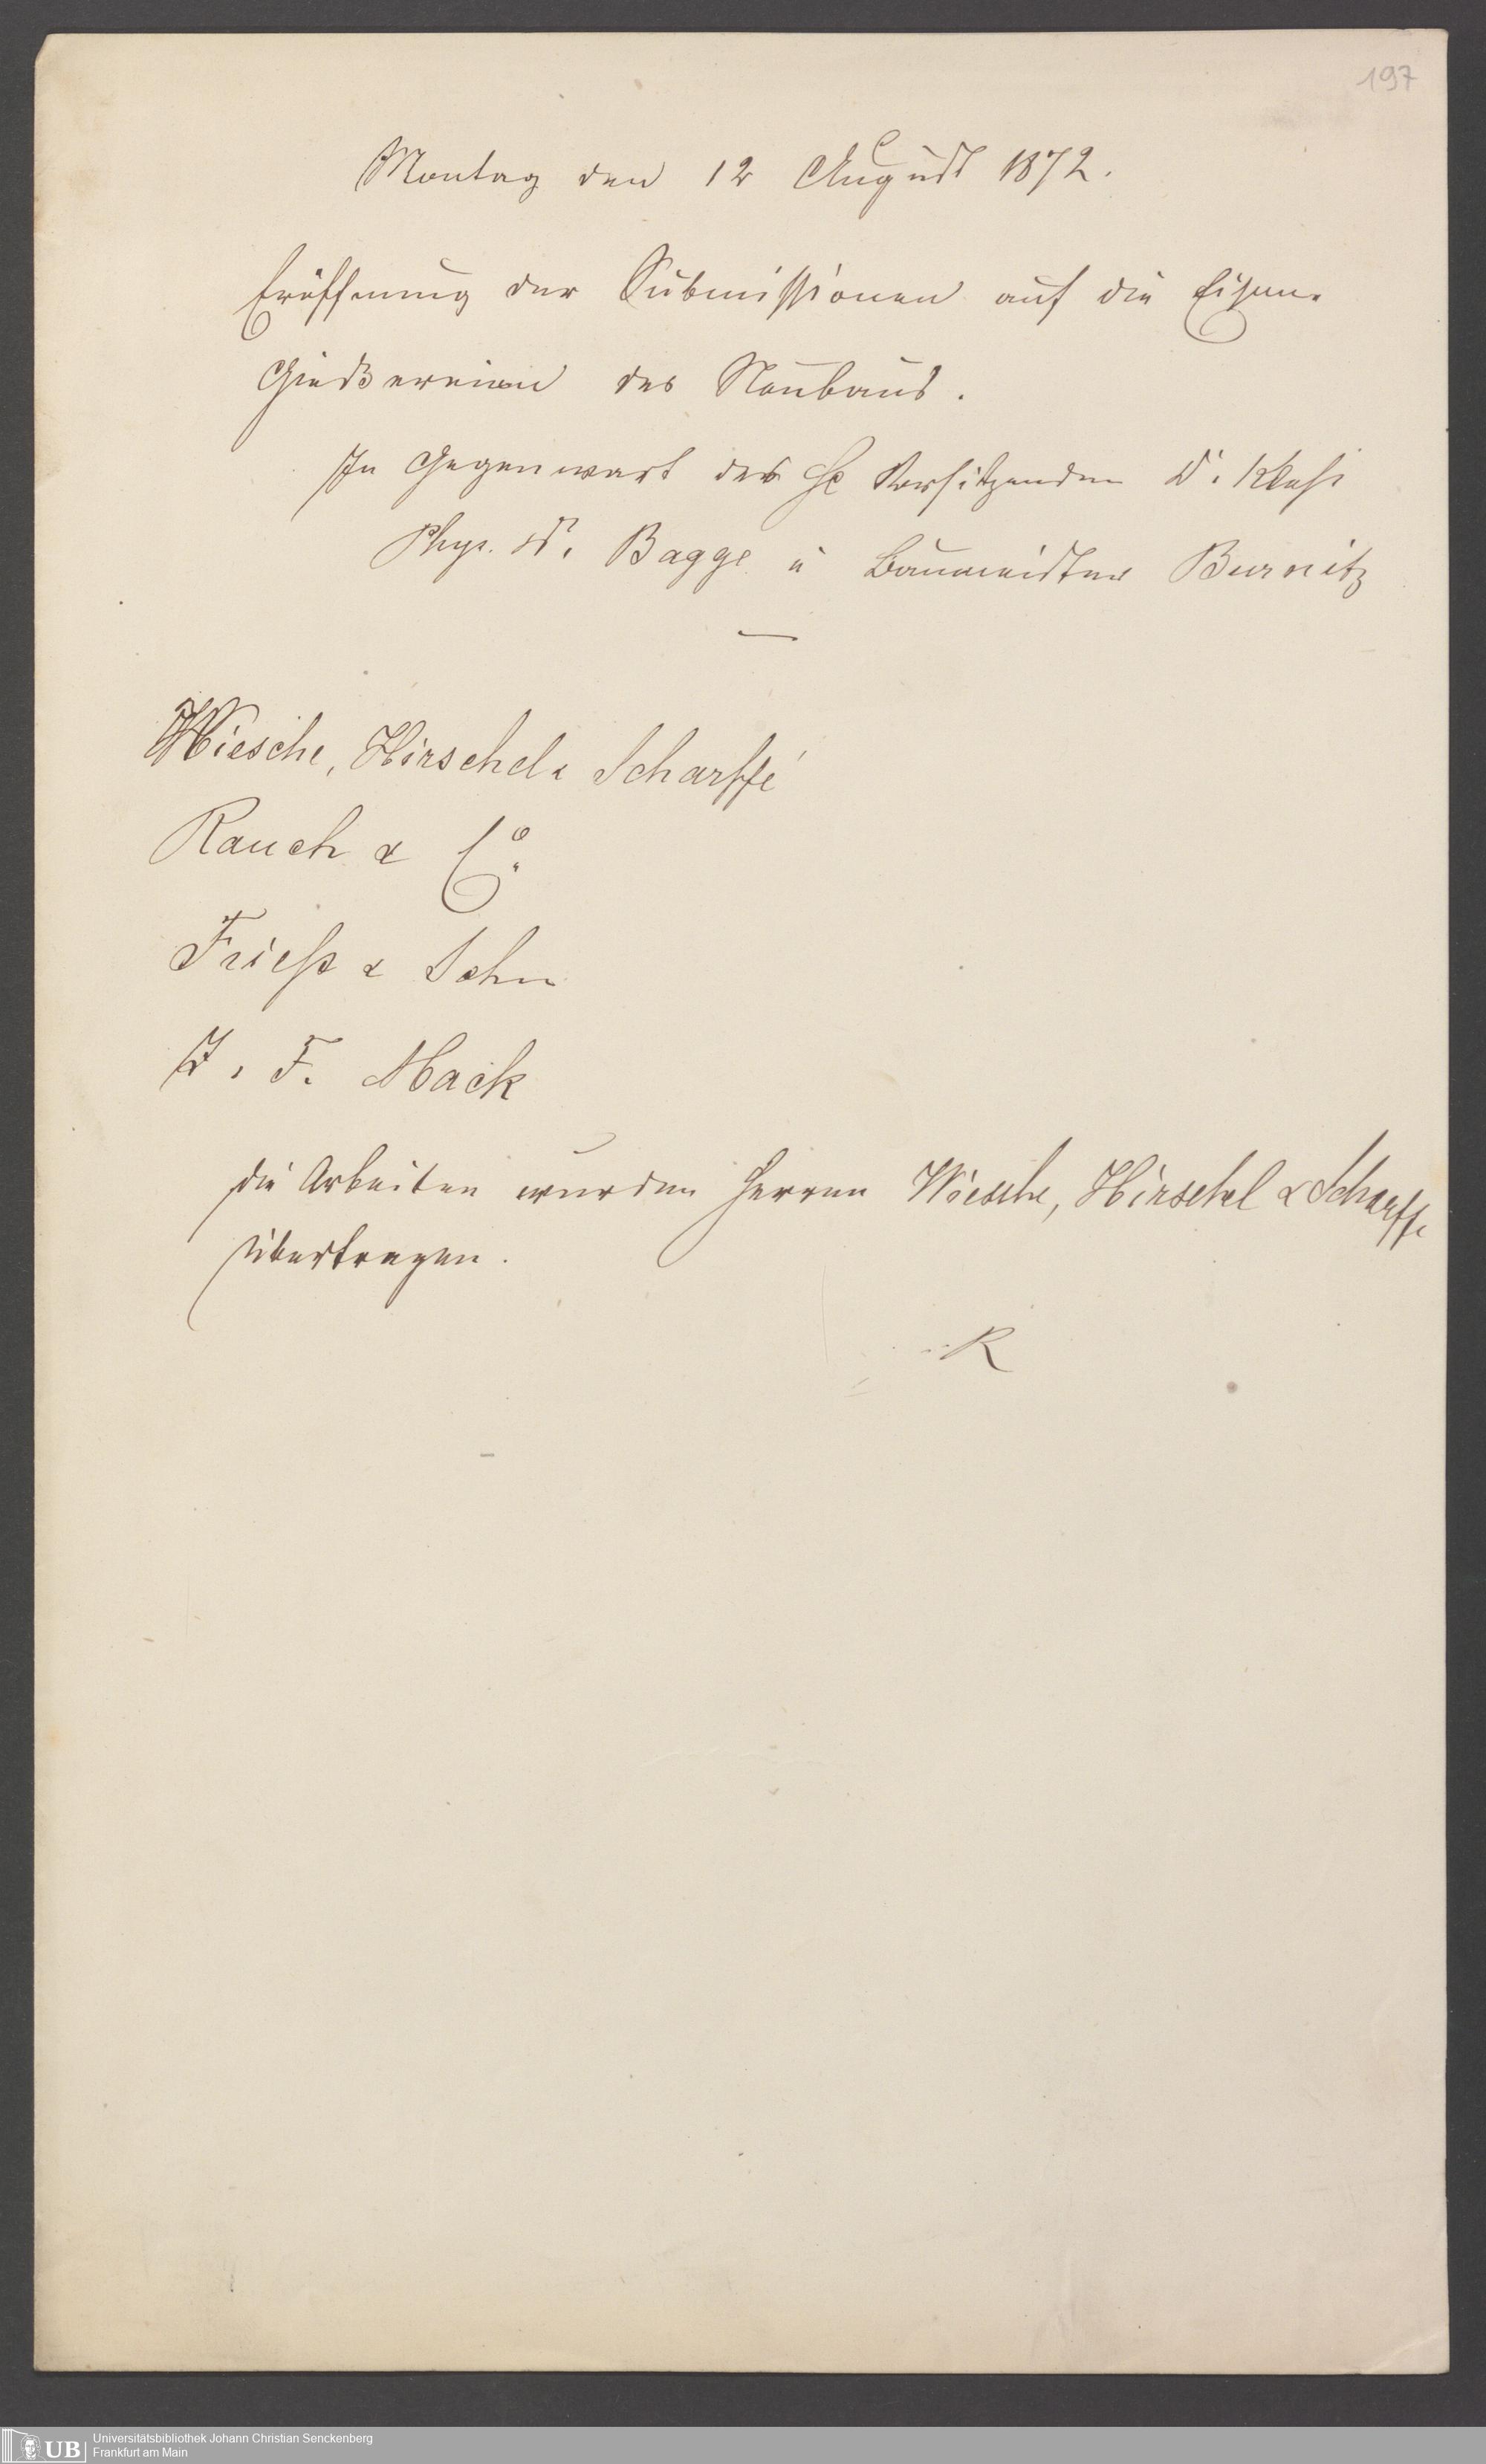 197
Montag den 12 August 1872.
Eröffnung der Submissionen auf die Eisen-
Gießereien des Neubaus.
In Gegenwart des H Vorsitzenden D.
Phys. D. Bagge u Baumeister Burnitz
Wiesche, Hirschel & Scharffe
Rauch & Co.
Frieß & Sohn
J. F. Mack
Die Arbeiten wurden Herren Wiesche, Hirschel & Scharffe
übertragen.
R
UB
Universitätsbibliothek Johann Christian Senckenberg
Frankfurt am Main